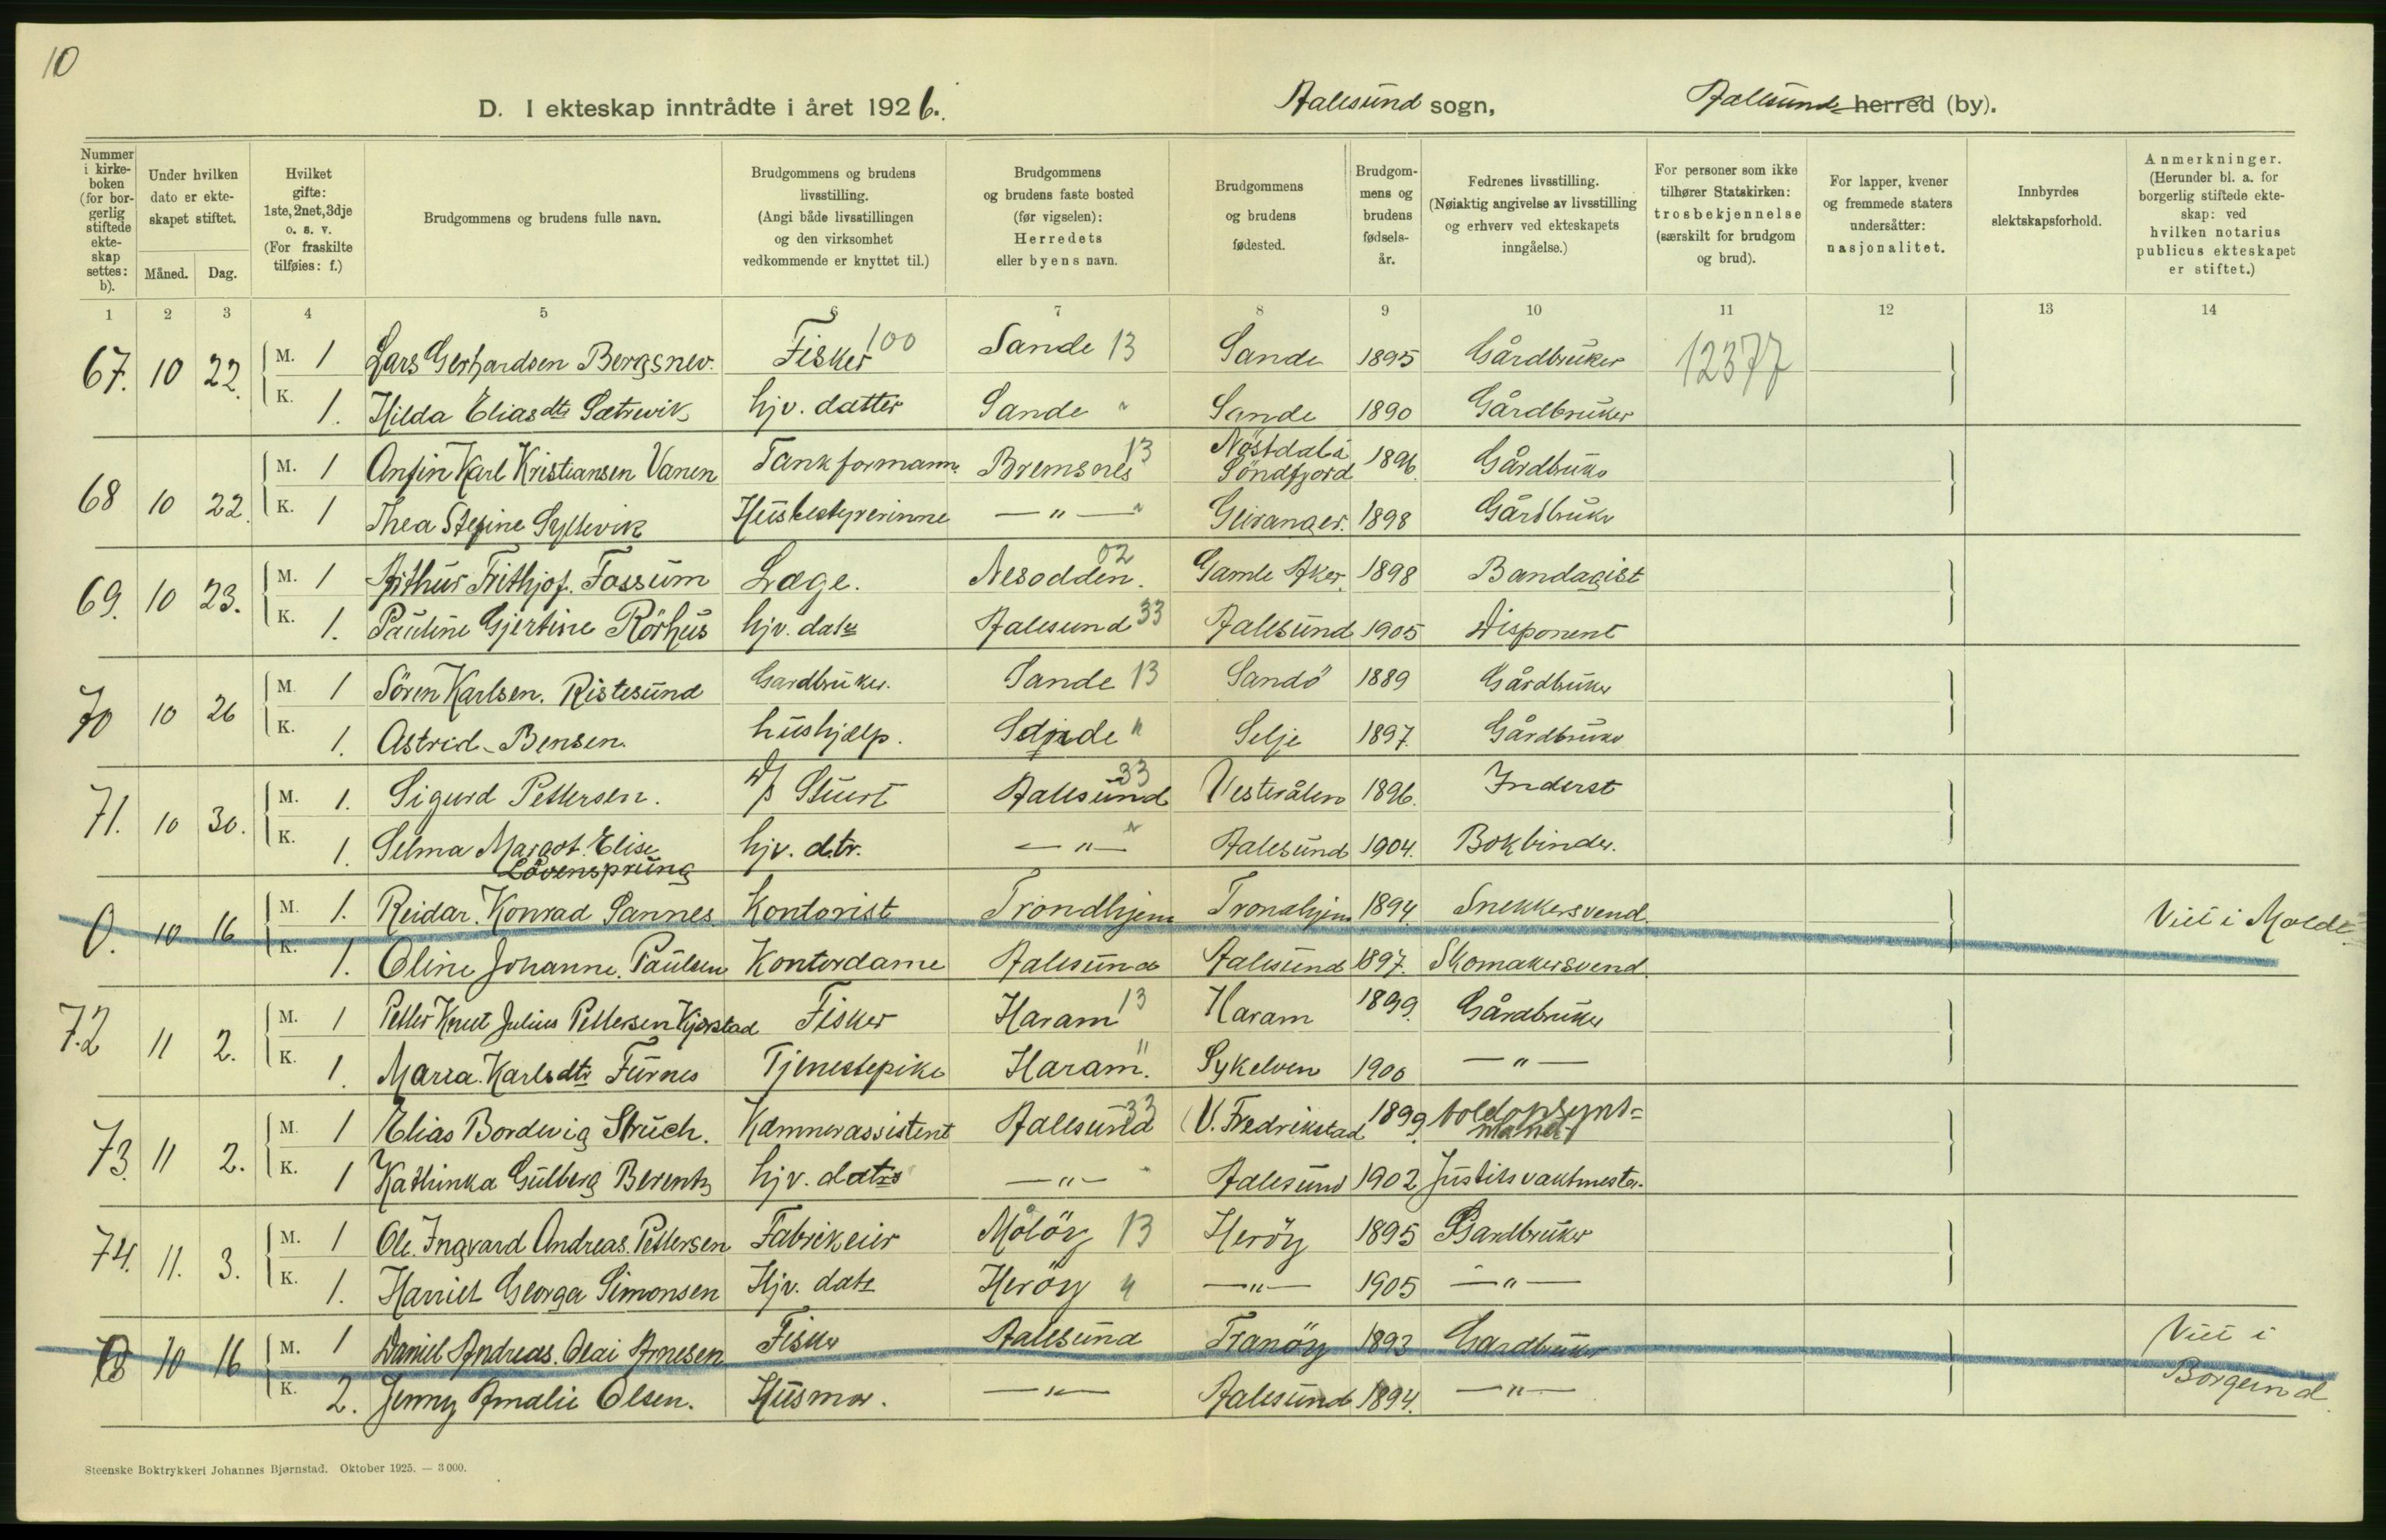 10
D. I ekteskap inntrådte i året 1926.
Aalesund sogn,
Aalesunds herred (by).
Nummer i kirkeboken (for borgerlig stiftede ekteskap settes: b).
Under hvilken dato er ekteskapet stiftet.
Måned. Dag.
Hvilket gifte: 1ste, 2net, 3dje o. s. v. (For fraskilte tilføies: f.)
Brudgommens og brudens fulle navn.
Brudgommens og brudens livsstilling. (Angi både livsstillingen og den virksomhet vedkommende er knyttet til.)
Brudgommens og brudens faste bosted (før vigselen): Herredets eller byens navn.
Brudgommens og brudens fødested.
Brudgommens og brudens fødselsår.
Fedrenes livsstilling. (Nøiaktig angivelse av livsstilling og erhverv ved ekteskapets inngåelse.)
For personer som ikke tilhører Statskirken: trosbekjennelse (særskilt for brudgom og brud).
For lapper, kvener og fremmede staters undersåtter: nasjonalitet.
Innbyrdes slektskapsforhold.
Anmerkninger. (Herunder bl. a. for borgerlig stiftede ekteskap: ved hvilken notarius publicus ekteskapet er stiftet.)
1 2 3 4 5 6 7 8 9 10 11 12 13 14
67. 10 22. M. 1 Lars Gerhardsen Bergsnev. Fisker 100 Sande 13 Sande 1895 Gårdbruker 12377
K. 1. Hilda Eliasdtr Sætrevik hjv. datter Sande " Sande 1890 Gårdbruker
68 10 22. M. 1 Anfin Karl Kristiansen Vanen Tankformann. Bremsnes 13 Nöstdal i Söndfjord 1896. Gårdbruker
K. 1 Thea Stefine Syltevik Husbestyrerinne — " — " Geiranger. 1898 Gårdbruker
69. 10 23. M. 1 Arthur Frithjof. Fossum Læge. Nesodden. 02 Gamle Aker. 1898 Bandagist
K. 1. Pauline Gjertine Rörhus hjv. datr Aalesund 33 Aalesund 1905 Disponent
70 10 26 M. 1 Sören Karlsen. Ristesund Gardbruker. Sande 13 Sandö 1889 Gårdbruker
K. 1. Astrid Bensen. hushjælp. Sande " Selje 1897. Gårdbruker
71. 10 30. M. 1. Sigurd Pettersen. D/S Stuert Aalesund 33 Vesterålen 1896. Inderst
K. 1. Selma Margot. Elise Lövensprung hjv. dtr. — " — " Aalesund 1904. Bokbinder.
0. 10 16 M. 1. Reidar. Konrad Sannes. Kontorist Trondhjem Trondhjem 1894 Snekkersvend. Viet i Molde.
K. 1. Oline Johanne. Paulsen Kontordame Aalesund Aalesund 1897. Skomakersvend.
72 11 2. M. 1 Petter Knut Julius Pettersen Kjerstad Fisker Haram 13 Haram 1899. Gårdbruker
K. 1. Marea. Karlsdtr Furnes Tjenestepike Haram. " Sykelven 1900 — " —
73. 11 2. M. 1 Elias Bordevig Struch. Kæmnerassistent Aalesund 33 V. Fredrikstad 1899. toldopsynsmand
K. 1 Kathinka Gulberg Berentz hjv. datr — " — " Aalesund 1902 Justitsvaktmester.
74. 11. 3. M. 1 Ole. Ingvard Andreas. Pettersen Fabrikeier Målöy 13 Heröy 1895 Gardbruker
K. 1. Harriet Georga Simonsen Hjv. datr Heröy " — " — 1905 — " —
0 10 16 M. 1 Daniel Andreas. Olai Arnesen Fisker Aalesund Tranöy 1893 Gardbruker Viet i Borgund.
K. 2. Jenny Amalie Olsen. Husmor. — " — Aalesund 1894. — " —
Steenske Boktrykkeri Johannes Bjørnstad. Oktober 1925. — 3 000.